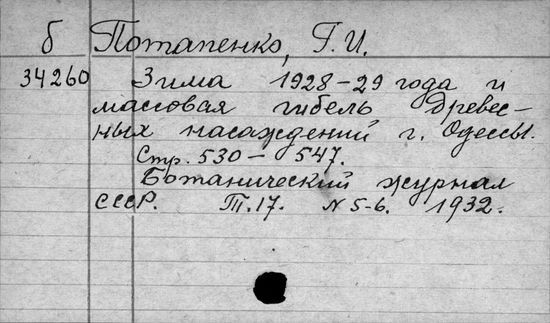 б Потапенко, Г. И.
34260 Зима 1928-29 года и
массовая гибель древес-
ных насаждений г. Одессы.
Стр. 530 - 547.
Ботанический журнал
СССР. Т. 17. № 5-6. 1932.